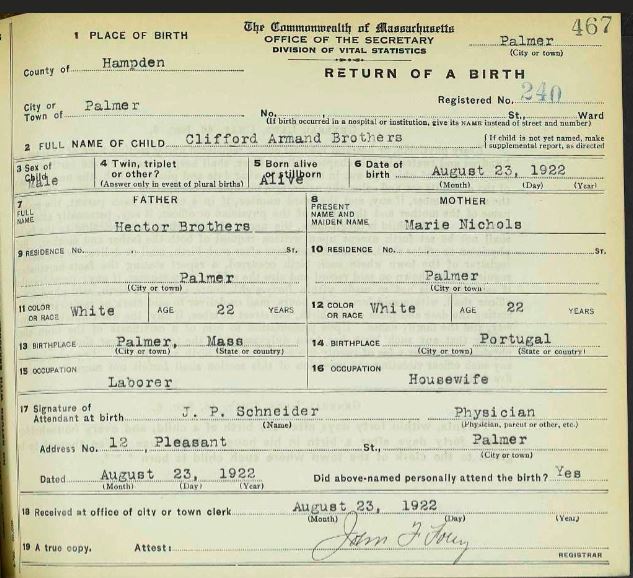 467
The Commonwealth of Massachusetts
1 PLACE OF BIRTH
OFFICE OF THE SECRETARY
DIVISION OF VITAL STATISTICS
Palmer
(City or town)
County of Hampden
RETURN OF A BIRTH
Registered No. 240
City or Town of Palmer
No. , St., Ward
(If birth occurred in a hospital or institution, give its NAME instead of street and number)
2 FULL NAME OF CHILD Clifford Armand Brothers
{ If child is not yet named, make supplemental report, as directed
3 Sex of Child Male
4 Twin, triplet or other?
(Answer only in event of plural births)
5 Born alive or stillborn Alive
6 Date of birth August 23, 1922
(Month) (Day) (Year)
7 FATHER
FULL NAME
Hector Brothers
8 MOTHER
PRESENT NAME AND MAIDEN NAME
Marie Nichols
9 RESIDENCE No. , St.
Palmer
(City or town)
10 RESIDENCE No. St.
Palmer
(City or town
11 COLOR OR RACE White AGE 22 YEARS
12 COLOR OR RACE White AGE 22 YEARS
13 BIRTHPLACE Palmer, Mass
(City or town) (State or country)
14 BIRTHPLACE Portugal
(City or town) (State or country)
15 OCCUPATION
Laborer
16 OCCUPATION
Housewife
17 Signature of Attendant at birth J. P. Schneider Physician
(Name) (Physician, parent or other, etc.)
Address No. 12 , Pleasant St., Palmer
(City or town)
Dated August 23, 1922
(Month) (Day) (Year)
Did above-named personally attend the birth? Yes
18 Received at office of city or town clerk August 23, 1922
(Month) (Day) (Year)
19 A true copy. Attest: John F. Foley
REGISTRAR